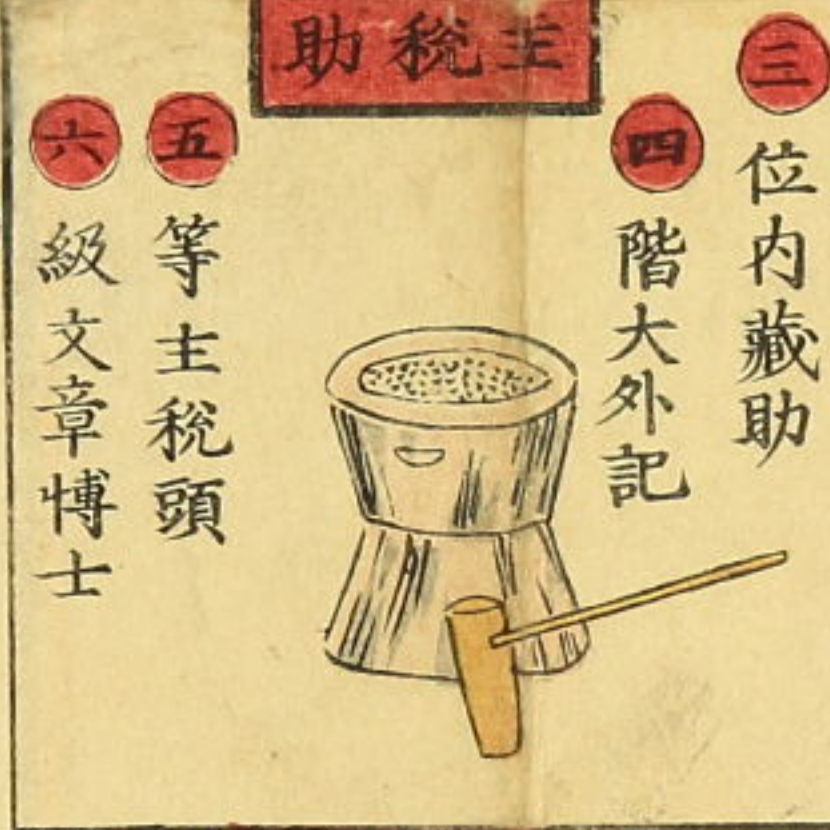 主税助
三
位内藏助
四
階大外記
五
等主税頭
六
級文章博士